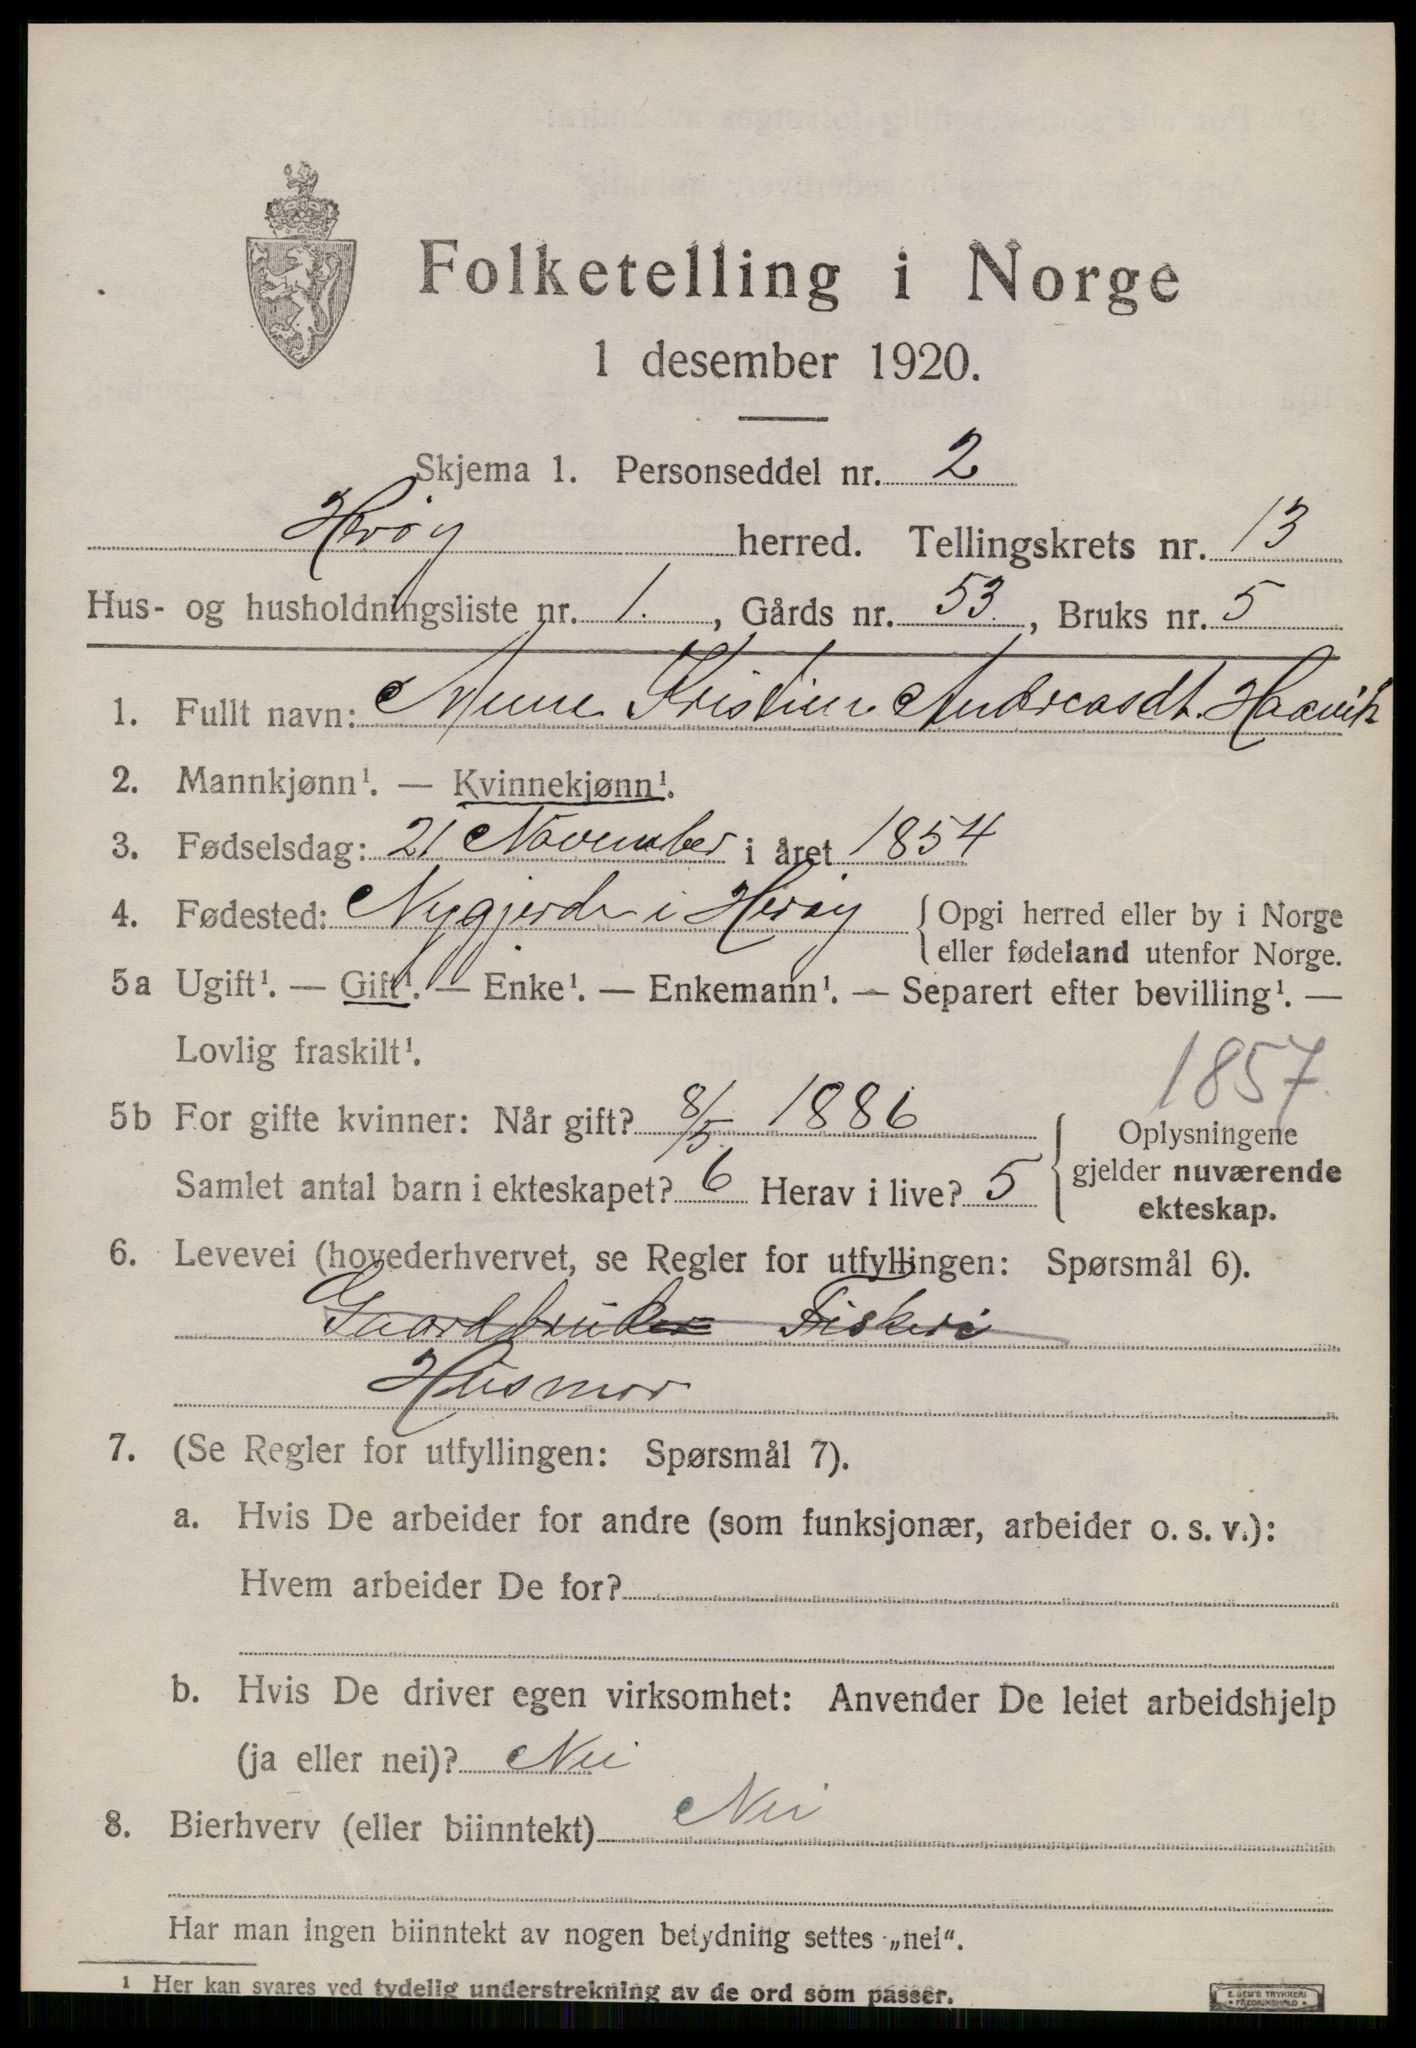 Folketelling i Norge
1 desember 1920.
Skjema 1. Personseddel nr. 2
Herøy herred. Tellingskrets nr. 13
Hus- og husholdningsliste nr. 1. , Gårds nr. 53. , Bruks nr. 5
1. Fullt navn: Anne Kristine Andreasdt. Haavik
2. Mannkjønn¹. — Kvinnekjønn¹.
3. Fødselsdag: 21 November i året 1854
4. Fødested: Nygjerde i Herøy { Opgi herred eller by i Norge
eller fødeland utenfor Norge.
5a Ugift¹. — Gift¹. — Enke¹. — Enkemann¹. — Separert efter bevilling¹. —
Lovlig fraskilt¹.
1857.
5b For gifte kvinner: Når gift? 8/5. 1886
Samlet antal barn i ekteskapet? 6 Herav i live? 5
{ Oplysningene
gjelder nuværende
ekteskap.
6. Levevei (hovederhvervet, se Regler for utfyllingen: Spørsmål 6).
Gaardbruker Fiskeri
Husmor
7. (Se Regler for utfyllingen: Spørsmål 7).
a. Hvis De arbeider for andre (som funksjonær, arbeider o. s. v.):
Hvem arbeider De for?
b. Hvis De driver egen virksomhet: Anvender De leiet arbeidshjelp
(ja eller nei)? Nei
8. Bierhverv (eller biinntekt) Nei
Har man ingen biinntekt av nogen betydning settes „nei“.
¹ Her kan svares ved tydelig understrekning av de ord som passer.
E. SEM'S TRYKKERI
FREDRIKSHALD